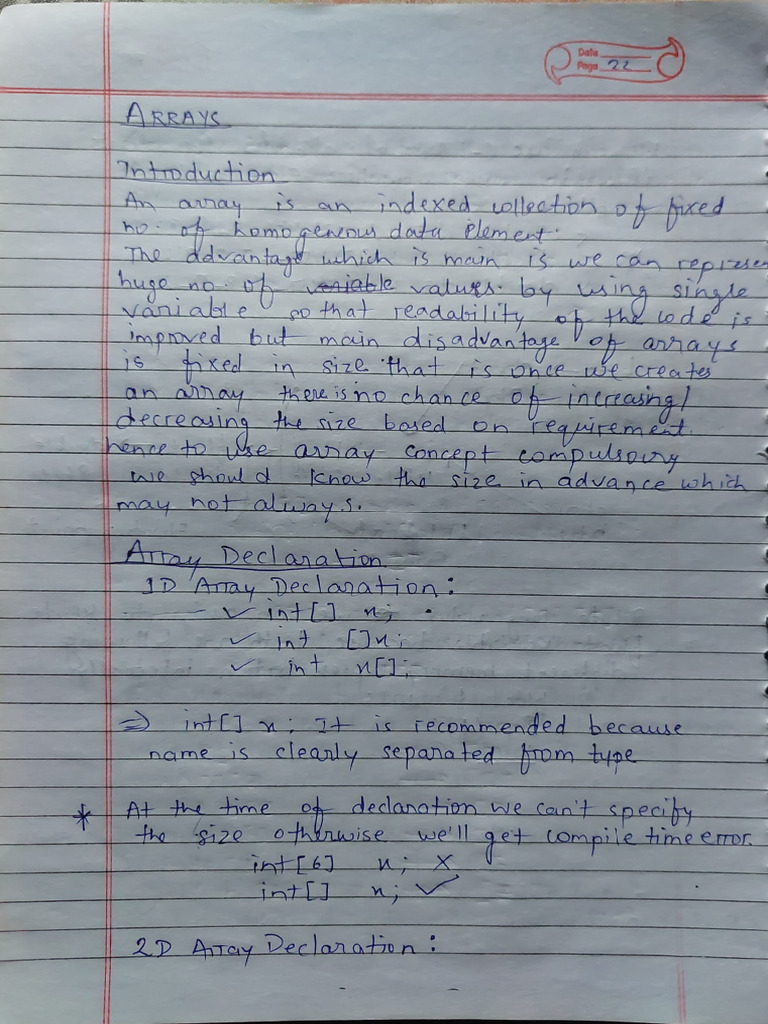 Date
Page 22
ARRAYS
Introduction
An array is an indexed collection of fixed
no. of homogenerous data element.
The advantage which is main is we can represen
huge no. of variable values. by using single
variable so that readability of the code is
improved but main disadvantage of arrays
is fixed in size that is once we creates
an array there is no chance of increasing/
decreasing the size based on requirement.
hence to use array concept compulsoury
we should know the size in advance which
may not always.
Array Declaration
1D Array Declaration:
✓ int[] x;
✓ int []x;
✓ int x[];
⇒ int[] x; It is recommended because
name is clearly separated from type
* At the time of declaration we can't specify
the size otherwise we'll get compile time error.
int[6] x; X
int[] x; ✓
2D Array Declaration: